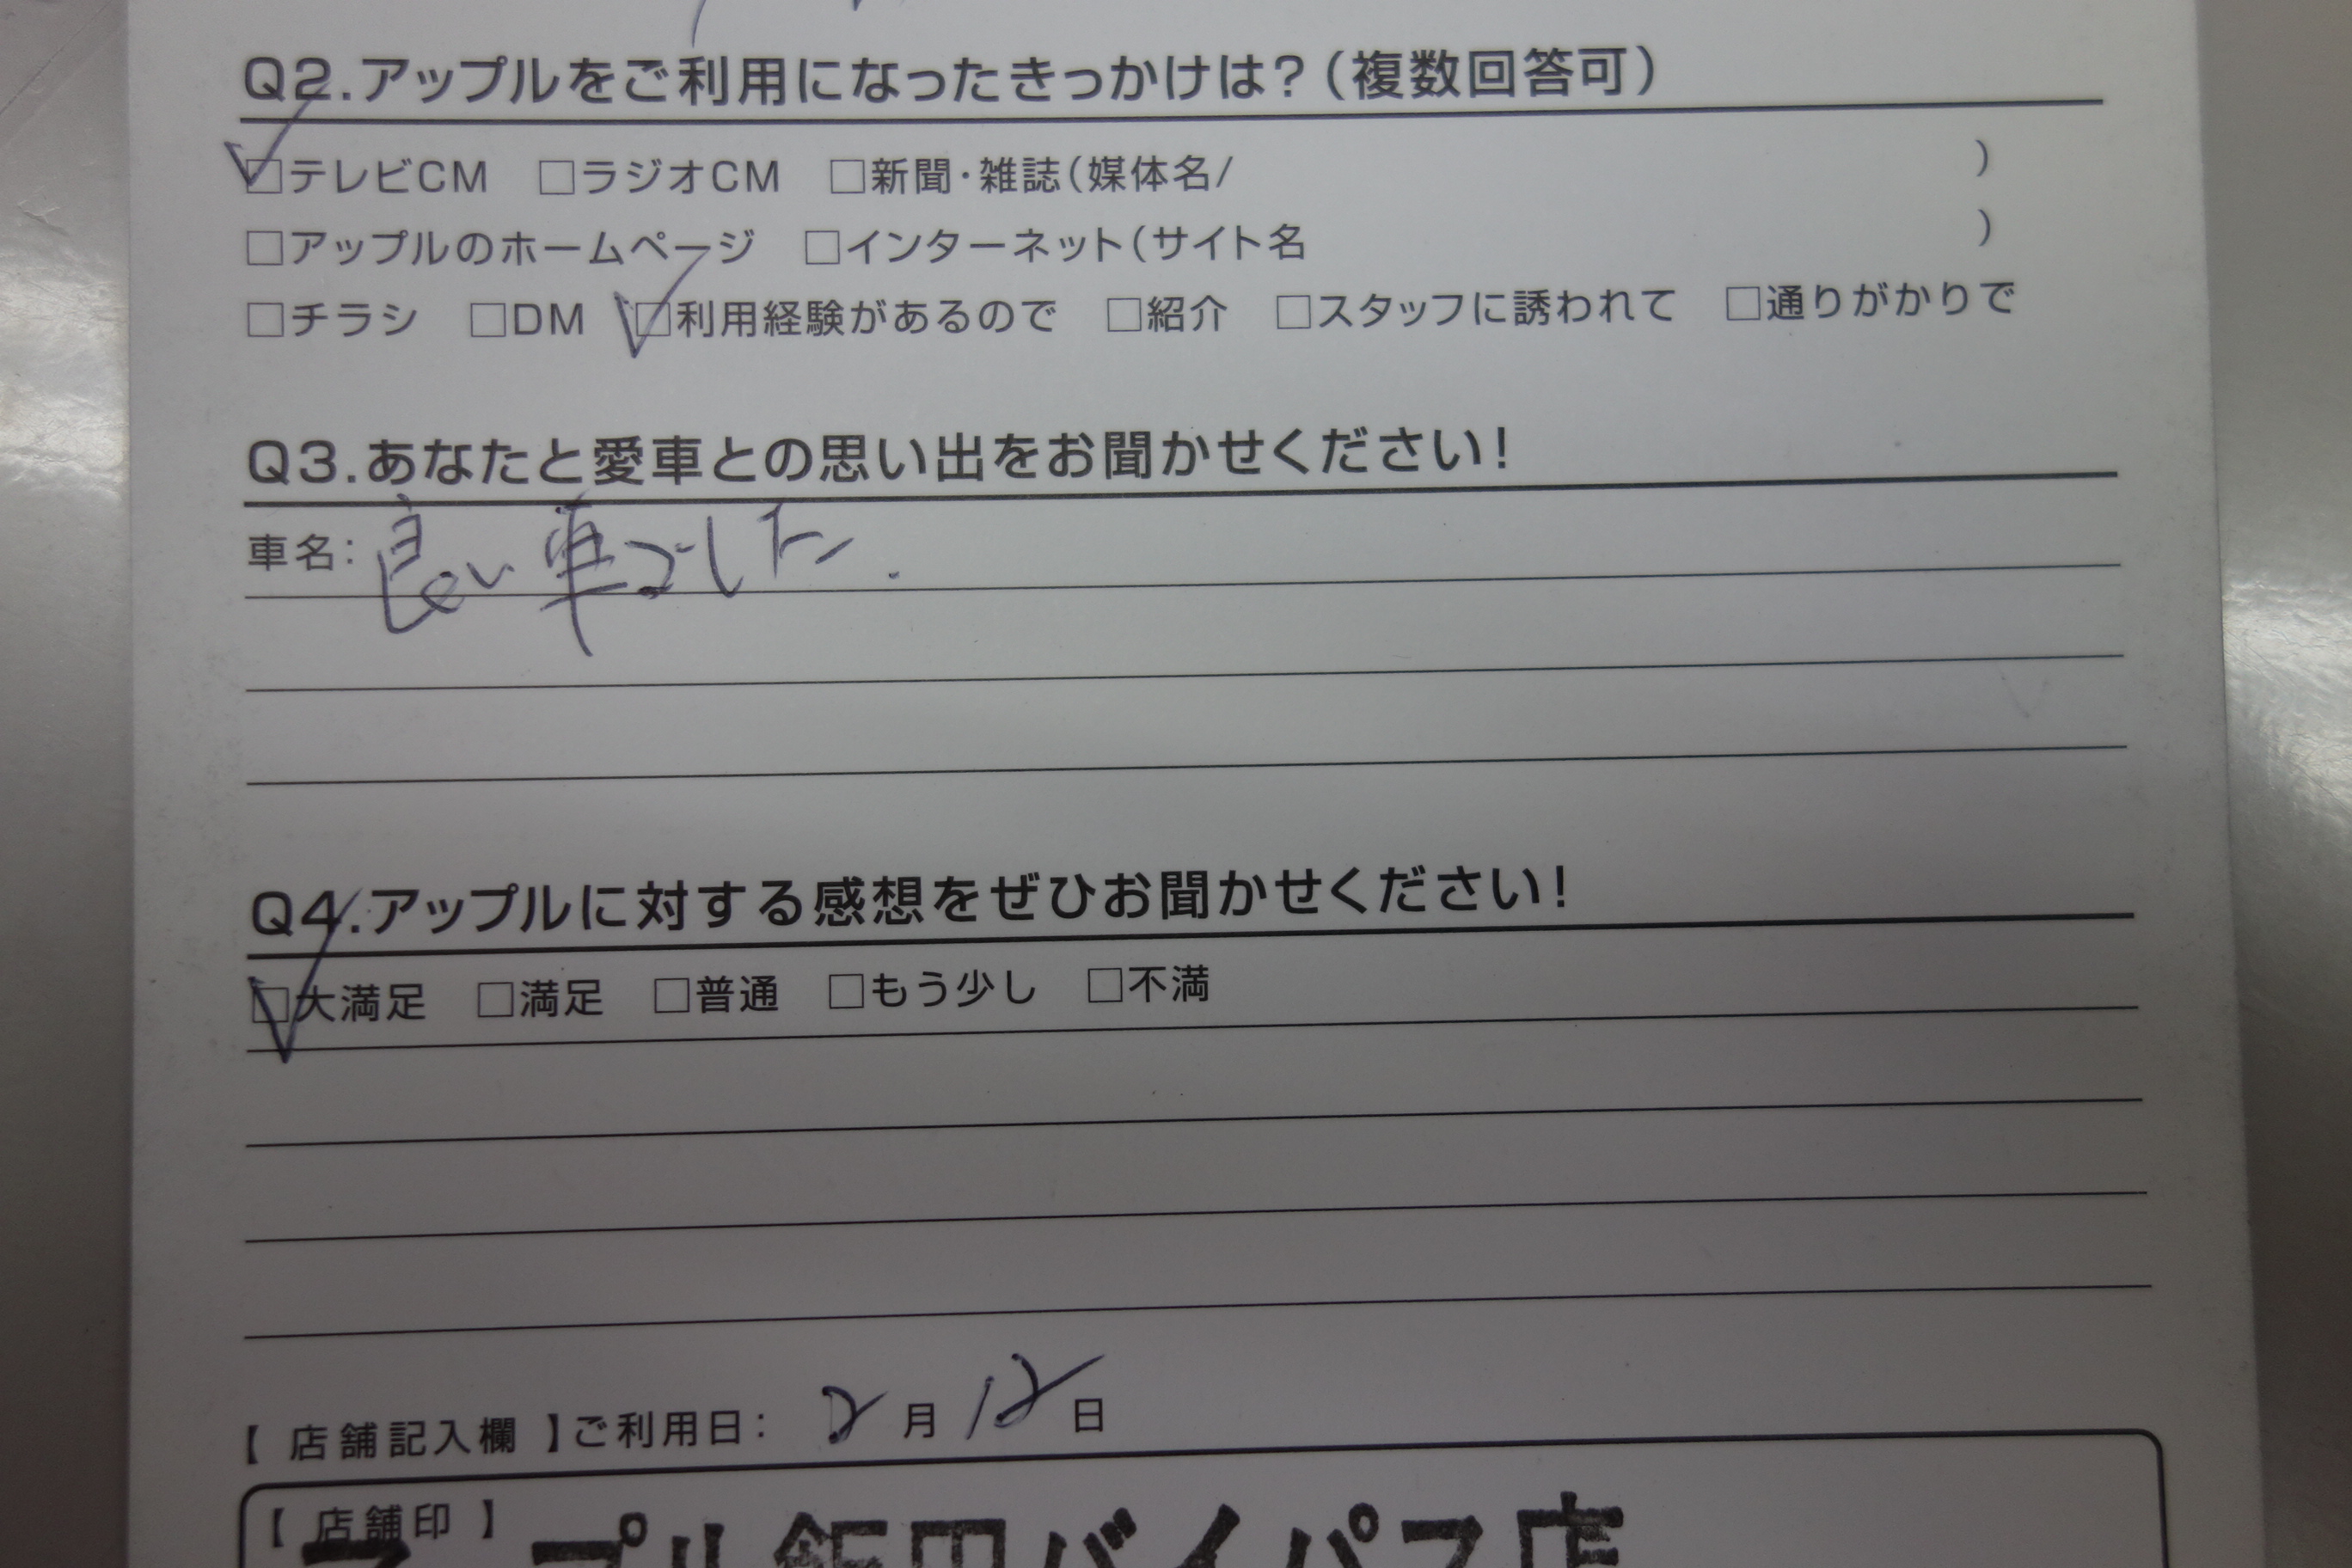 Q2.アップルをご利用になったきっかけは?(複数回答可)
☑テレビCM □ラジオCM □新聞・雑誌(媒体名/ )
□アップルのホームページ □インターネット(サイト名 )
□チラシ □DM ☑利用経験があるので □紹介 □スタッフに誘われて □通りがかりで
Q3.あなたと愛車との思い出をお聞かせください!
車名: 良い車でした.
Q4.アップルに対する感想をぜひお聞かせください!
☑大満足 □満足 □普通 □もう少し □不満
【 店舗記入欄 】ご利用日: 2月12日
【 店舗印 】
アップル飯田バイパス店